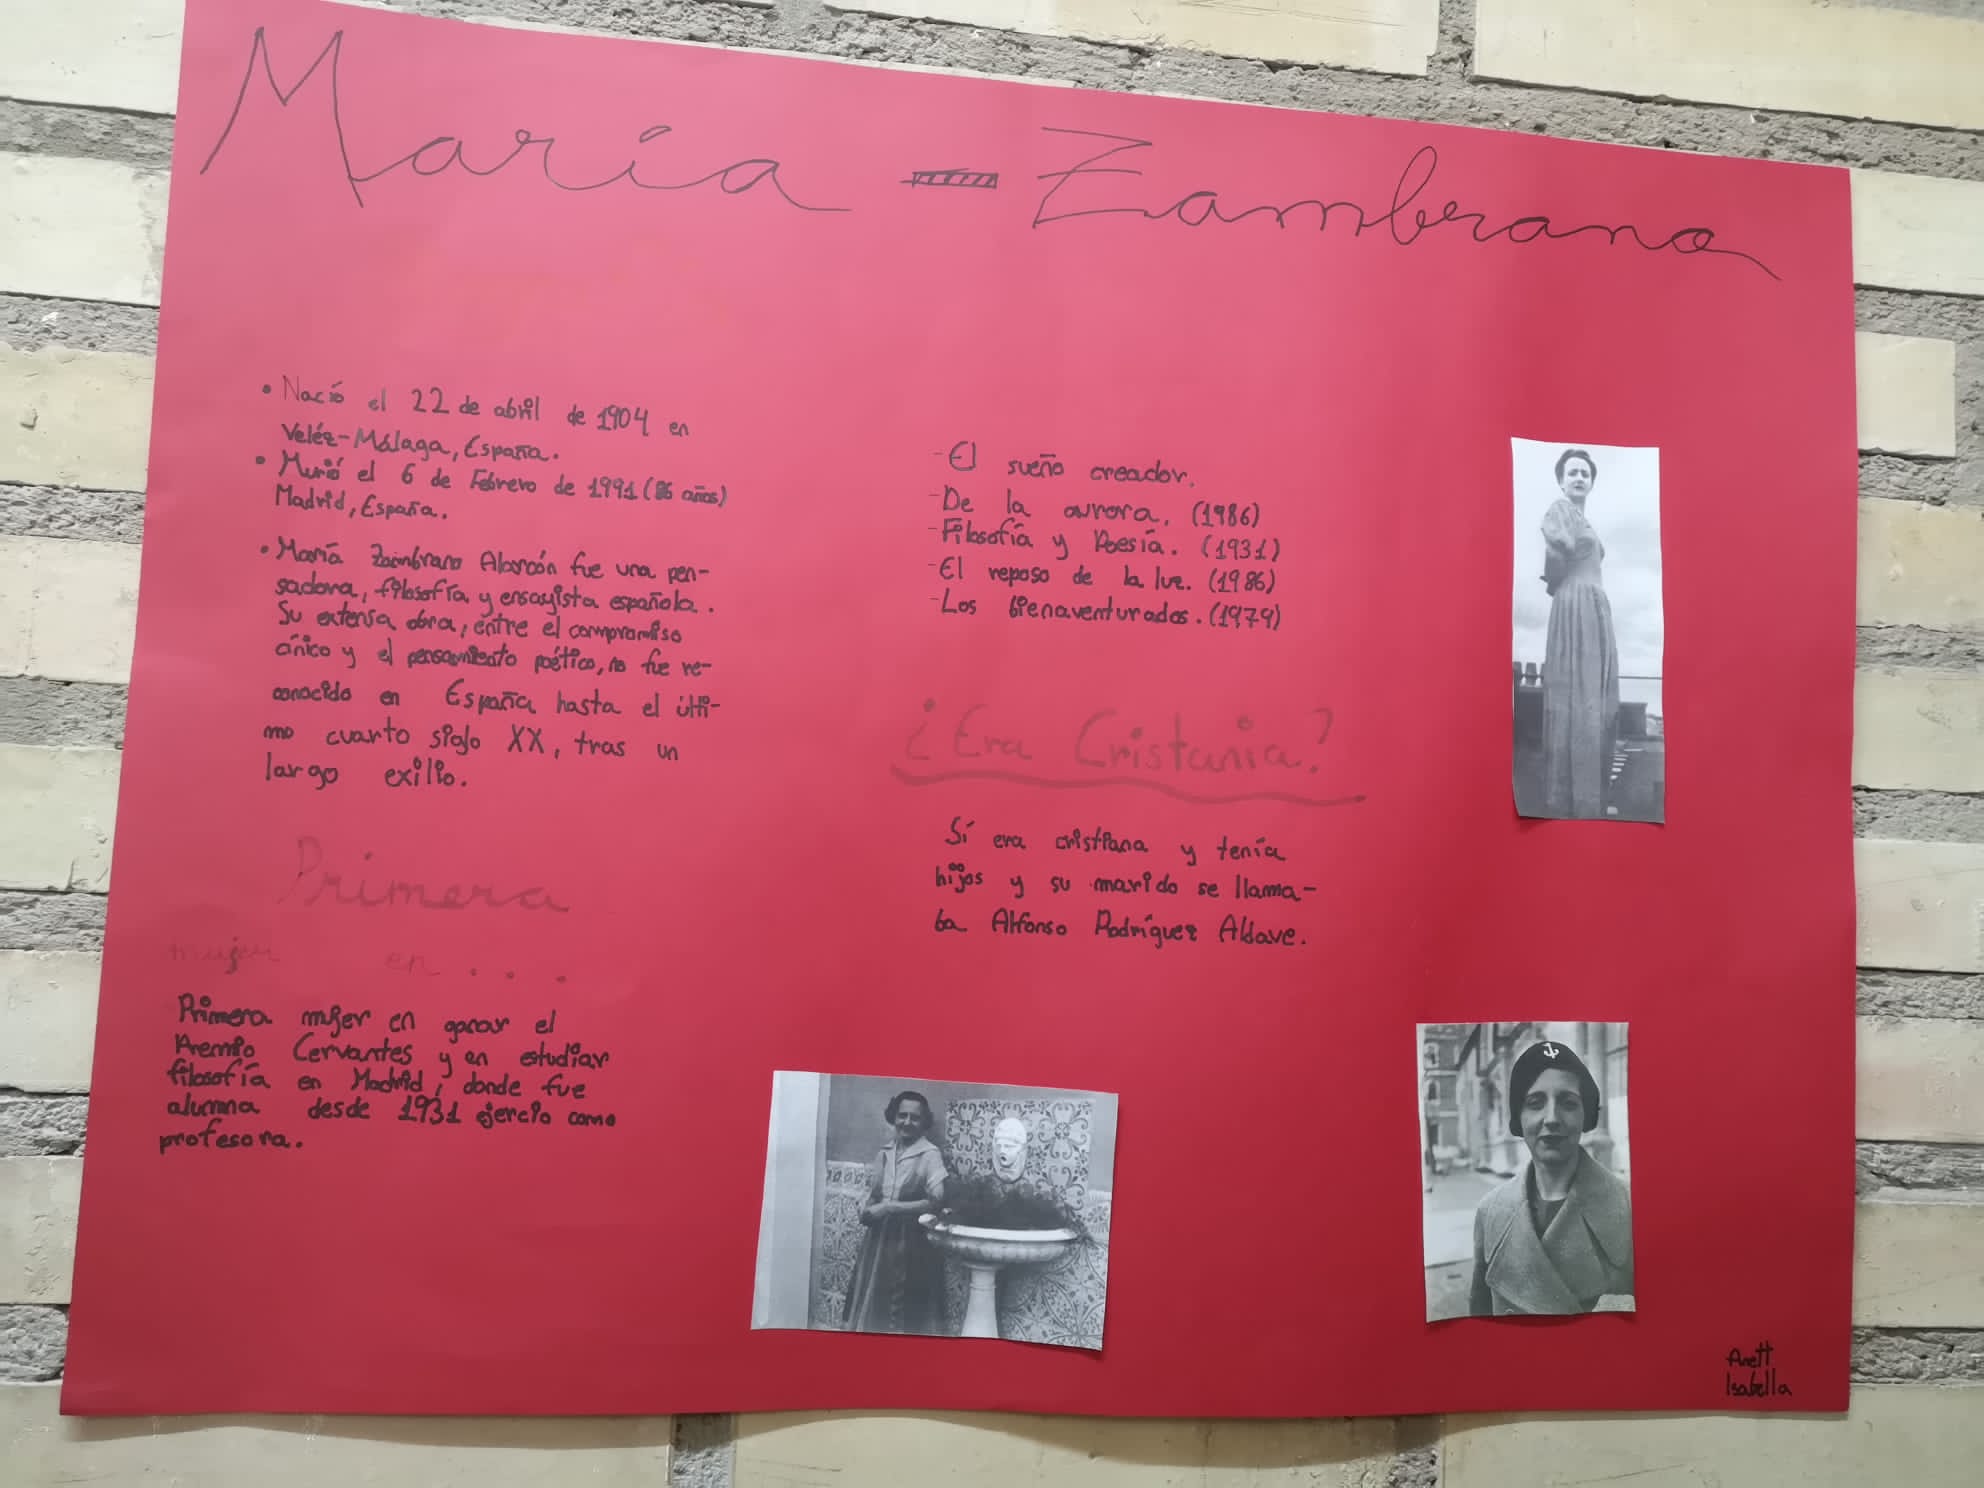 María - Zambrano
• Nació el 22 de abril de 1904 en
Veléz-Málaga, España.
• Murió el 6 de Febrero de 1991 (86 años)
Madrid, España.
• María Zambrano Alarcón fue una pen-
sadora, filosofía y ensayista española.
Su extensa obra, entre el compromiso
cínico y el pensamiento poético, no fue re-
conocido en España hasta el últi-
mo cuarto siglo XX, tras un
largo exilio.
Primera
mujer en...
Primera mujer en ganar el
Premio Cervantes y en estudiar
filosofía en Madrid, donde fue
alumna desde 1931 ejercio como
profesora.
- El sueño creador.
- De la aurora. (1986)
- Filosofía y Poesía. (1931)
- El reposo de la luz. (1986)
- Los bienaventurados. (1979)
¿Era Cristania?
Sí era cristiana y tenía
hijos y su marido se llama-
ba Alfonso Rodríguez Aldave.
Anett
Isabella